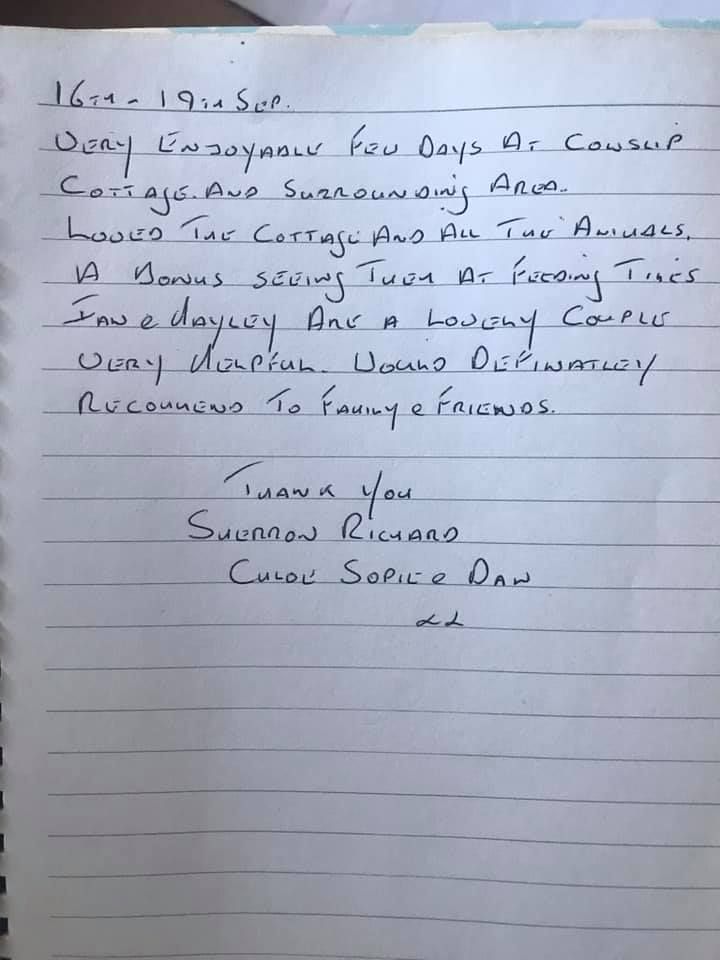 16TH - 19TH SEP.
VERY ENJOYABLE FEW DAYS AT COWSLIP
COTTAGE. AND SURROUNDING AREA.
LOVED THE COTTAGE AND ALL THE ANIMALS,
A BONUS SEEING THEM AT FEEDING TIMES
IAN & HAYLEY ARE A LOVELY COUPLE
VERY HELPFUL. WOULD DEFINATLEY
RECOMMEND TO FAMILY & FRIENDS.
THANK YOU
SHERRON RICHARD
CHLOE SOPIE & DAN
xx